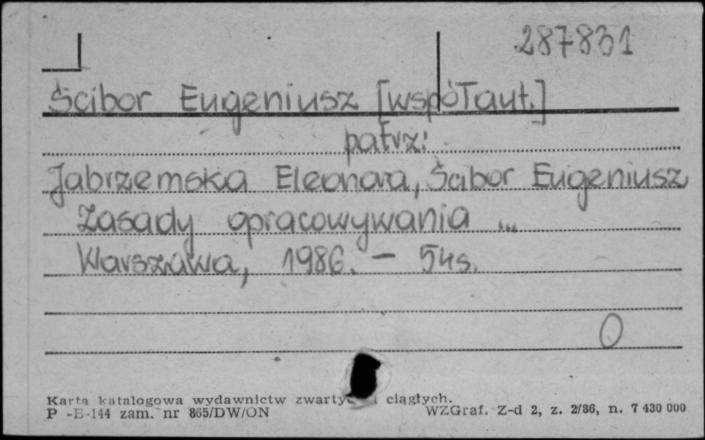 287831
Ścibor Eugeniusz [współaut.]
patrz:
Jabrzemska Eleonora, Ścibor Eugeniusz
Zasady opracowywania ...
Warszawa, 1986. - 54s.
0
Karta katalogowa wydawnictw ciągłych.
P -B-144 zam. nr 865/DW/ON
WZGraf. Z-d 2, z. 2/86, n. 7 430 000